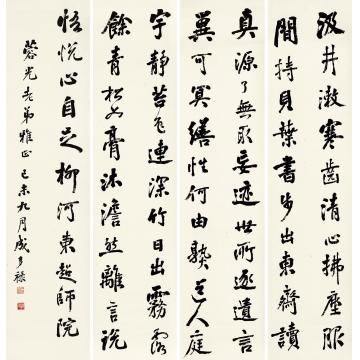 汲井漱寒齒清心拂塵服
閒持貝葉書步出東齋讀
真源了無取妄迹世所逐遺言
冀可冥繕性何由熟道人庭
宇靜苔色連深竹日出霧露
餘青松如膏沐澹然離言說
悟悅心自足柳河東超師院
蓉光老弟雅正己未九月成多祿